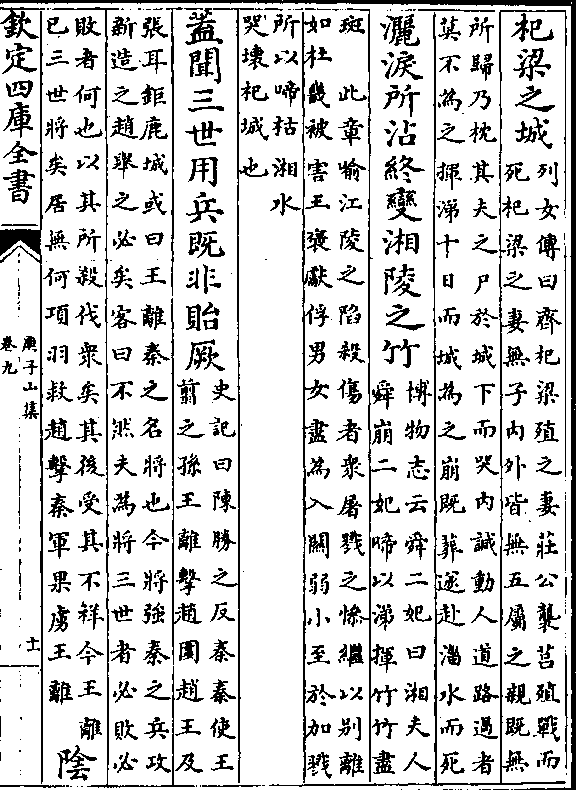 杞梁之城
列女傳曰齊杞梁殖之妻莊公襲莒殖戰而
死杞梁之妻無子内外皆無五屬之親既無
所歸乃枕其夫之尸於城下而哭内諴動人道路過者
莫不為之揮涕十日而城為之崩既葬遂赴淄水而死
灑淚所沾終變湘陵之竹
博物志云舜二妃曰湘夫人
舜崩二妃啼以涕揮竹竹盡
斑 此章喻江陵之陷殺傷者衆屠戮之慘繼以别離
如杜畿被害王褒獻俘男女盡為入關弱小至於加戮
所以啼枯湘水
哭壞杞城也
蓋聞三世用兵既非貽厥
史記曰陳勝之反秦秦使王
翦之孫王離擊趙圍趙王及
張耳鉅鹿城或曰王離秦之名將也今將強秦之兵攻
新造之趙舉之必矣客曰不然夫為將三世者必敗必
敗者何也以其所殺伐衆矣其後受其不祥今王離
已三世將矣居無何項羽救趙擊秦軍果虜王離
陰
欽定四庫全書
庾子山集
卷九
十一